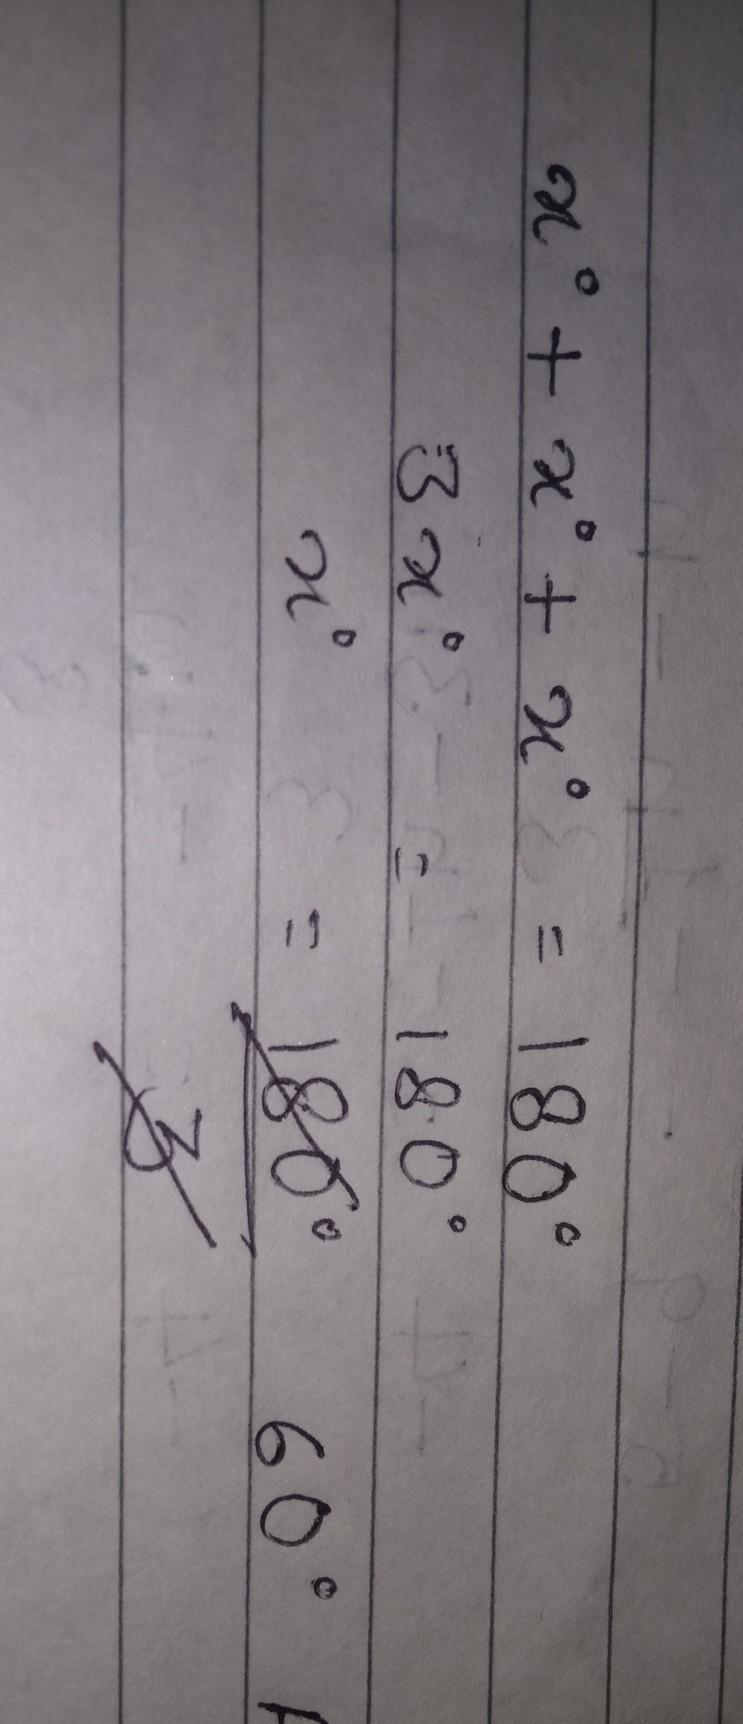 x° + x° + x° = 180°
3x° = 180°
x° = 180°/3 60°